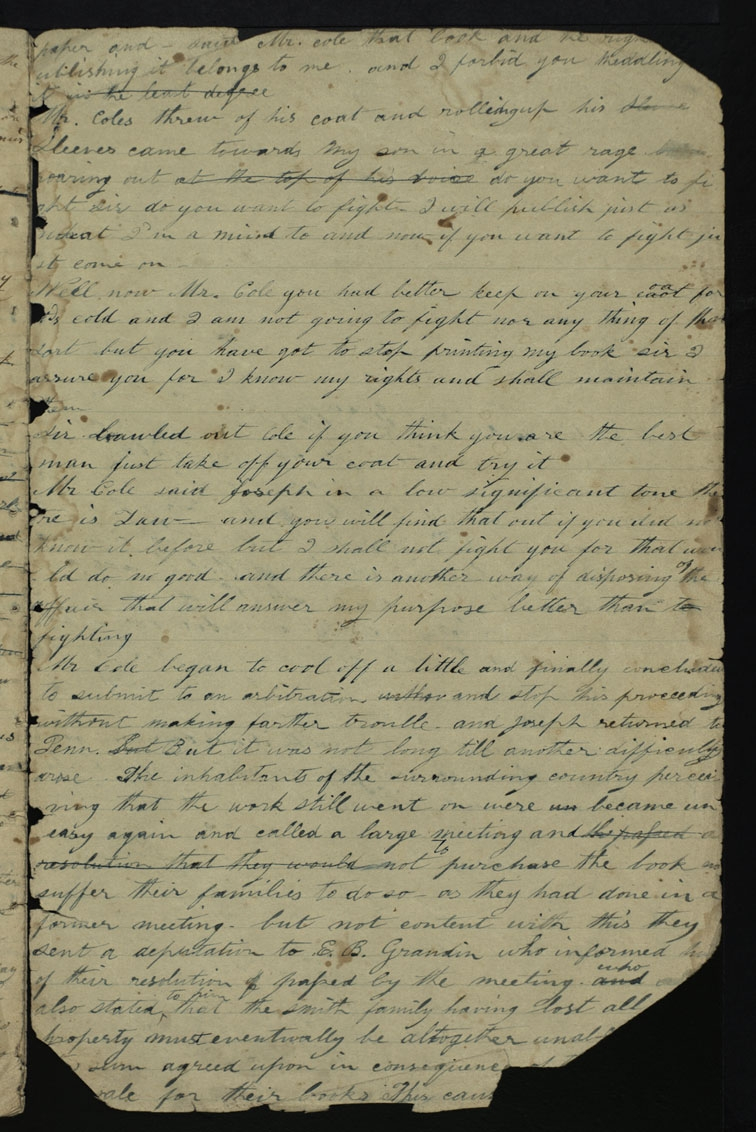 paper and - said Mr. Cole that book and the righ
ublishing it belongs to me. and I forbid you meddling
it in the least degree
Mr. Coles threw of his coat and rolling up his
Sleeves came towards my son in a great rage
roaring out at the top of his voice do you want to fi
ght sir do you want to fight I will publish just as
what I'm a mind to and now if you want to fight ju
st come on -
Well now Mr. Cole you had better keep on your coat for
its cold and I am not going to fight nor any thing of that
sort but you have got to stop printing my book sir I
assure you for I know my rights and shall maintain
them
Sir bawled out Cole if you think you are the best
man just take off your coat and try it
Mr Cole said Joseph in a low significant tone the
re is Law- and you will find that out if you did no
know it before but I shall not fight you for that wou
ld do no good. and there is another way of disposing of the
affair that will answer my purpose better than to
fighting
Mr Cole began to cool off a little and finally concluded
to submit to an arbitration and stop his proceeding
without making farther trouble. and Joseph returned to
Penn. But But it was not long till another difficulty
arose. The inhabitants of the surrounding country percei
ving that the work still went on were un became un
easy again and called a large meeting and a
resolution that they would not purchase the book n
suffer their families to do so - as they had done in a
former meeting. but not content with this they
sent a deputation to E. B. Grandin who informed hi
of their resolution passed by the meeting. and who
also stated to him that the smith family having lost all
property must eventually be altogether unabl
sum agreed upon in consequenc
sale for their books This caus